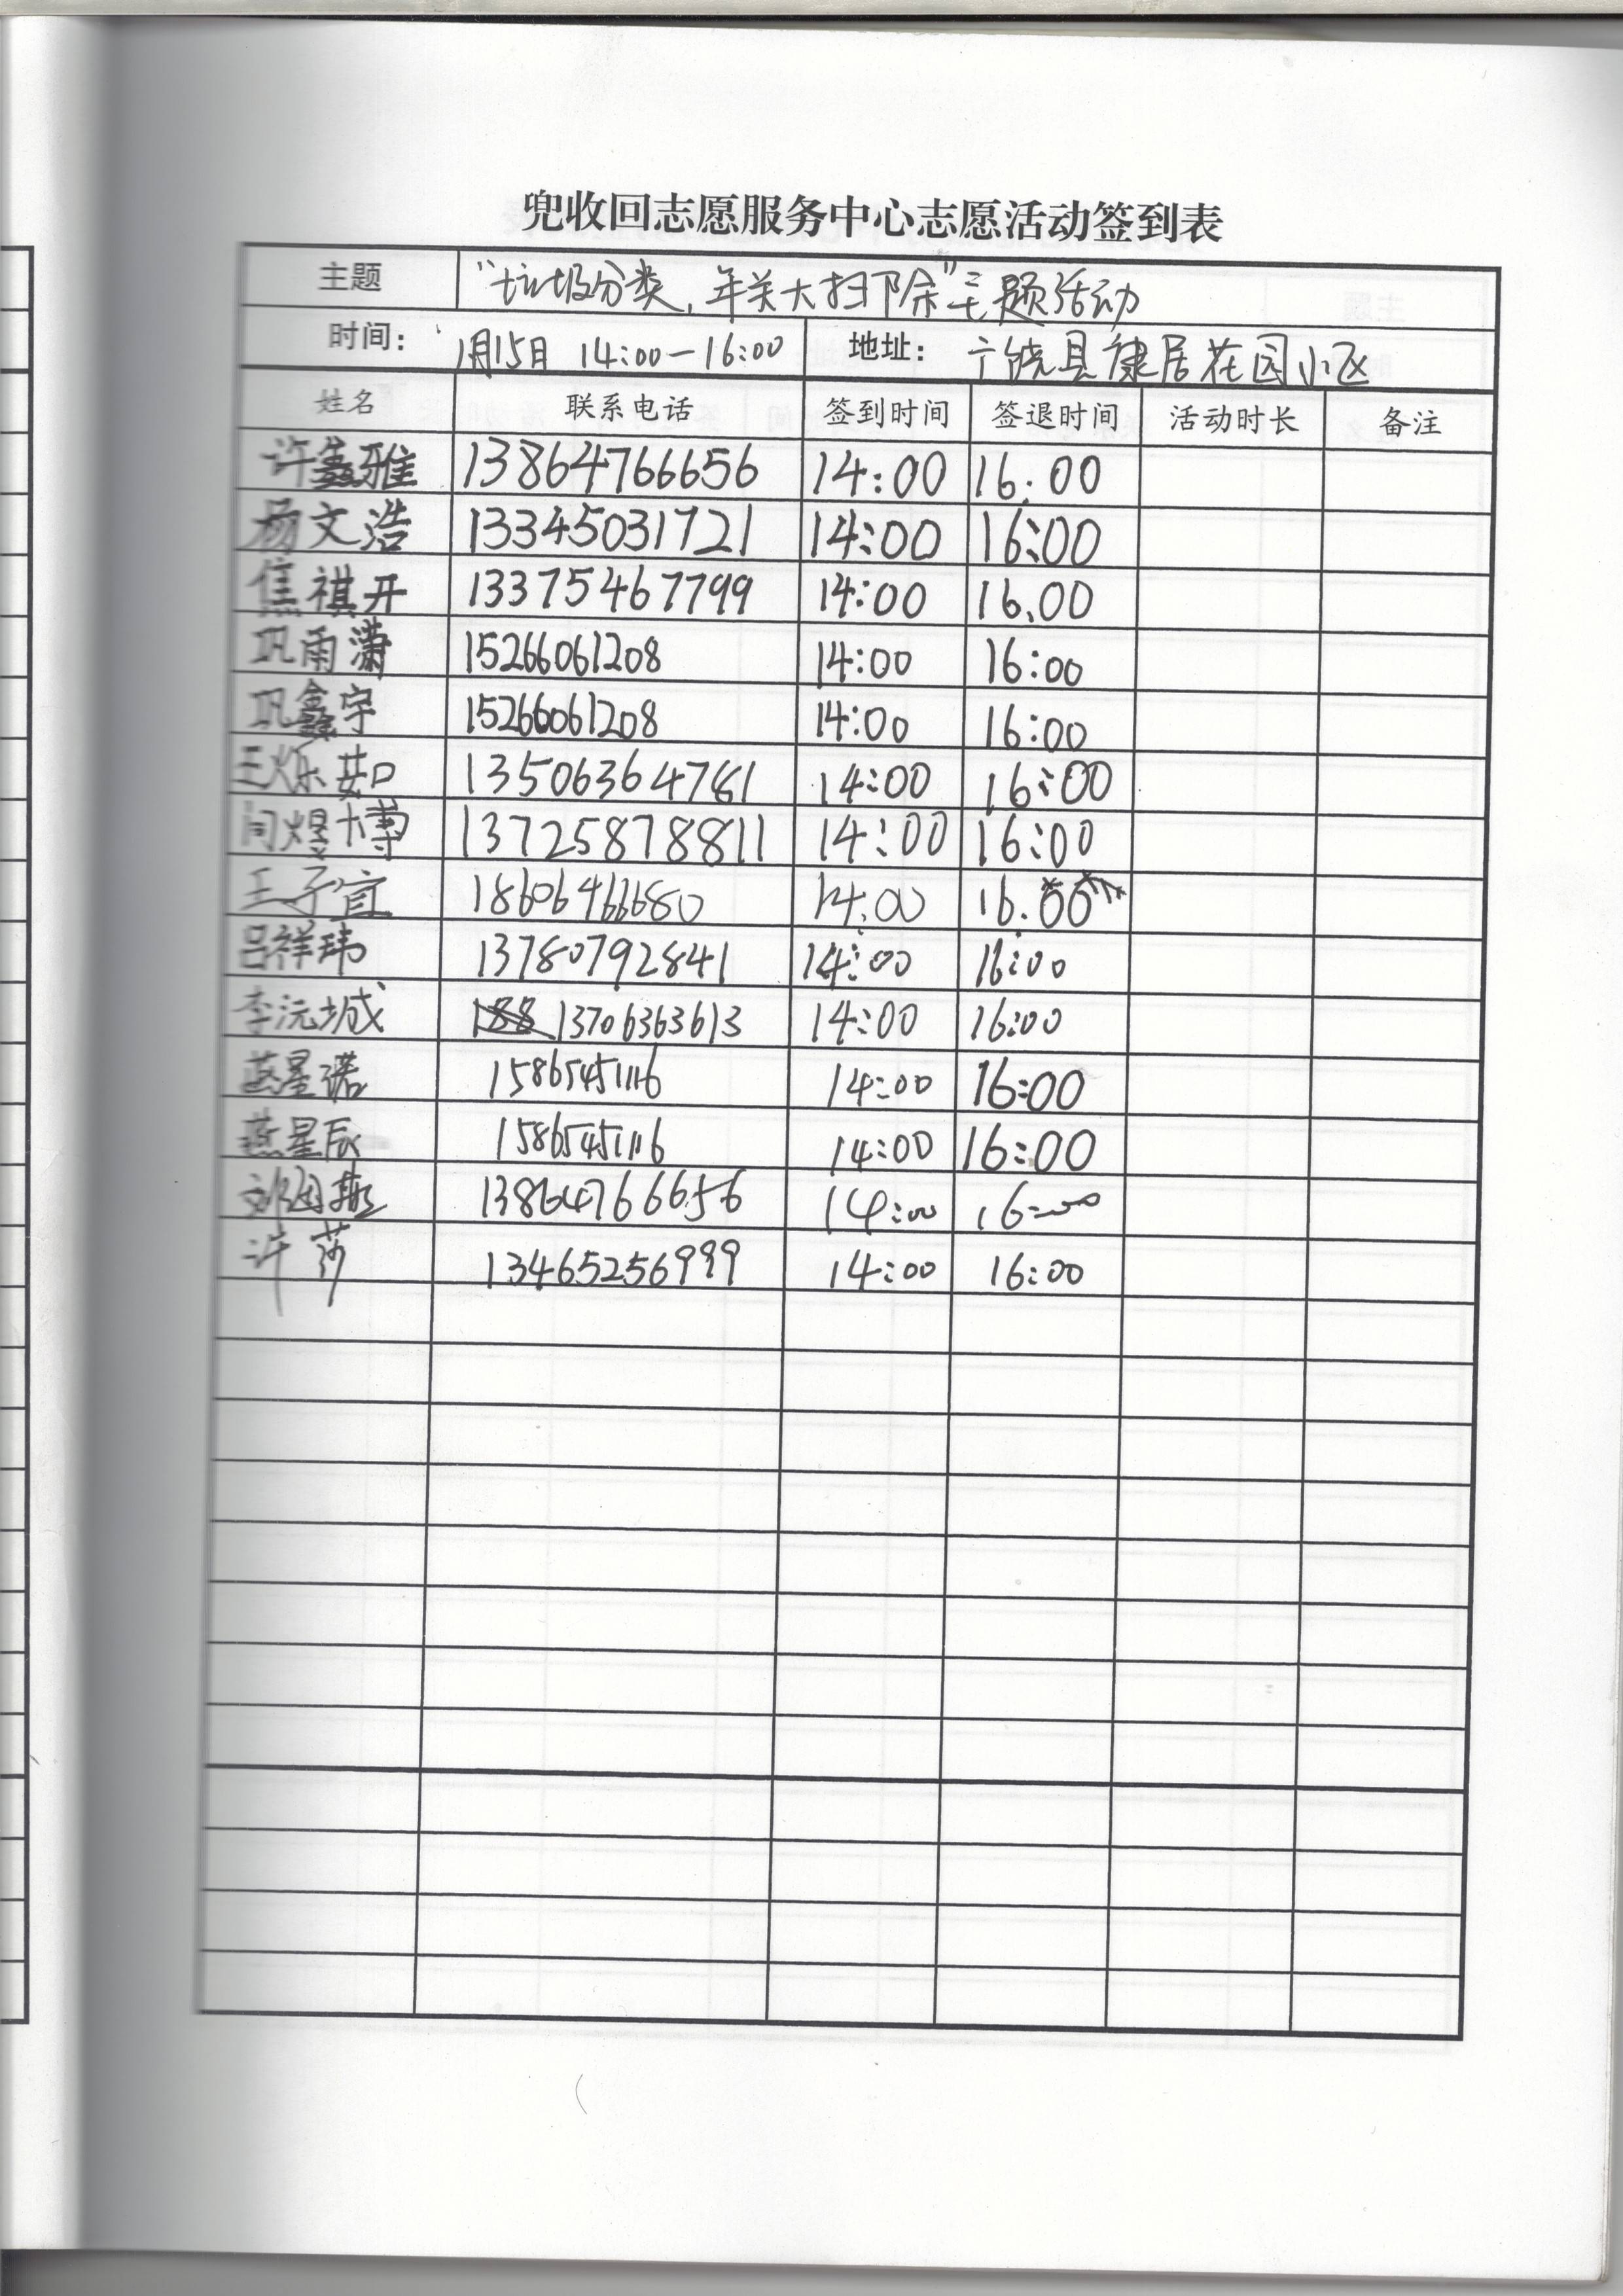 兜收回志愿服务中心志愿活动签到表
主题 "垃圾分类,年关大扫下除"主题活动
时间: 1月15日 14:00-16:00 地址: 广饶县康居花园小区
姓名 联系电话 签到时间 签退时间 活动时长 备注
许鑫雅 13864766656 14:00 16:00
杨文浩 13345031721 14:00 16:00
焦祺开 13375467799 14:00 16.00
巩雨潇 15266061208 14:00 16:00
巩鑫宇 15266061208 14:00 16:00
王烁茹 13506364781 14:00 16:00
闫煜博 13725878811 14:00 16:00
王子宜 18606466680 14:00 16.00
吕祥玮 13780792841 14:00 16:00
李沅城 13706363613 14:00 16:00
燕星诺 15865451116 14:00 16:00
燕星辰 15865451116 14:00 16:00
13864766656 14:00 16:00
许莎 13465256999 14:00 16:00